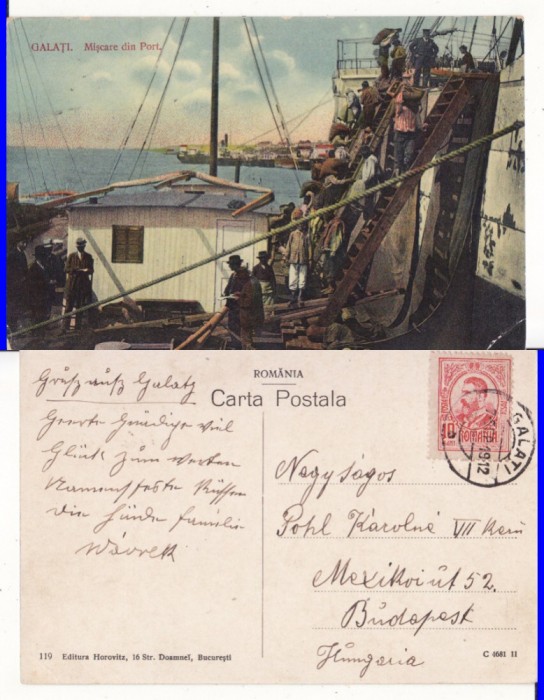 GALAȚI. Mișcare din Port.
ROMÂNIA
Carta Postala
Gruß aus Galatz
Geerte Gnädige viel
Glück zum werten
Namensfeste Küssen
die Hände Familie
10 BANI
ROMANIA
GALATI
1912
Nagyságos
Pohl Károlné VII ker
Mexikói út 52.
Budapest
Hungaria
119 Editura Horovitz, 16 Str. Doamneĭ, Bucureștĭ
C 4681 11